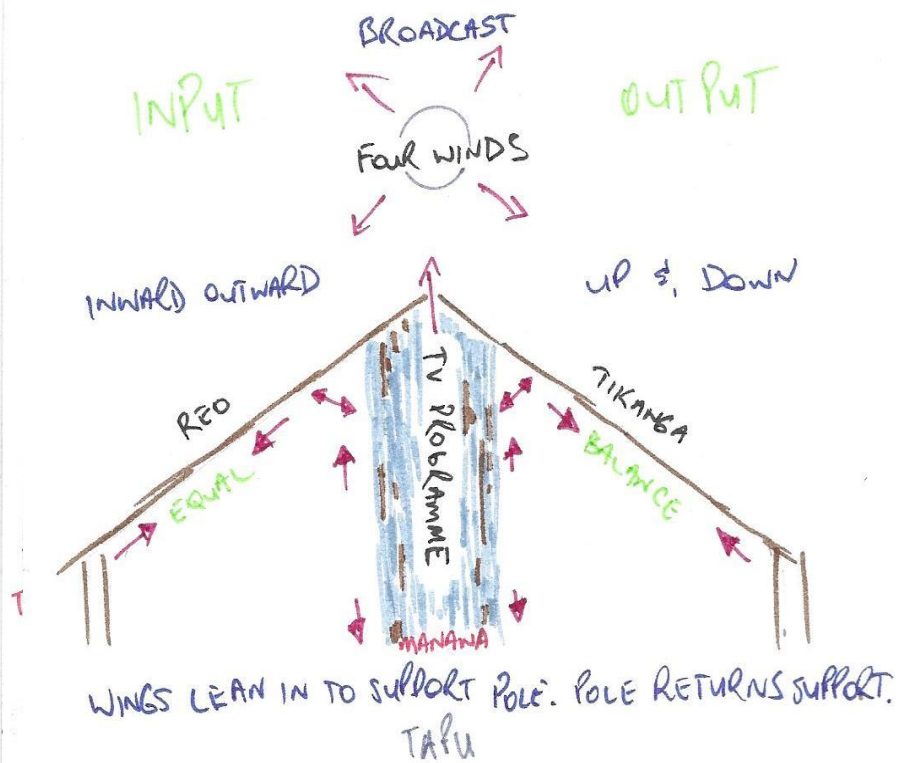 BROADCAST
INPUT
OUTPUT
FOUR WINDS
INWARD OUTWARD
UP & DOWN
REO
TIKANGA
TV PROGRAMME
EQUAL
BALANCE
T
MANAWA
WINGS LEAN IN TO SUPPORT POLE. POLE RETURNS SUPPORT.
TAPU